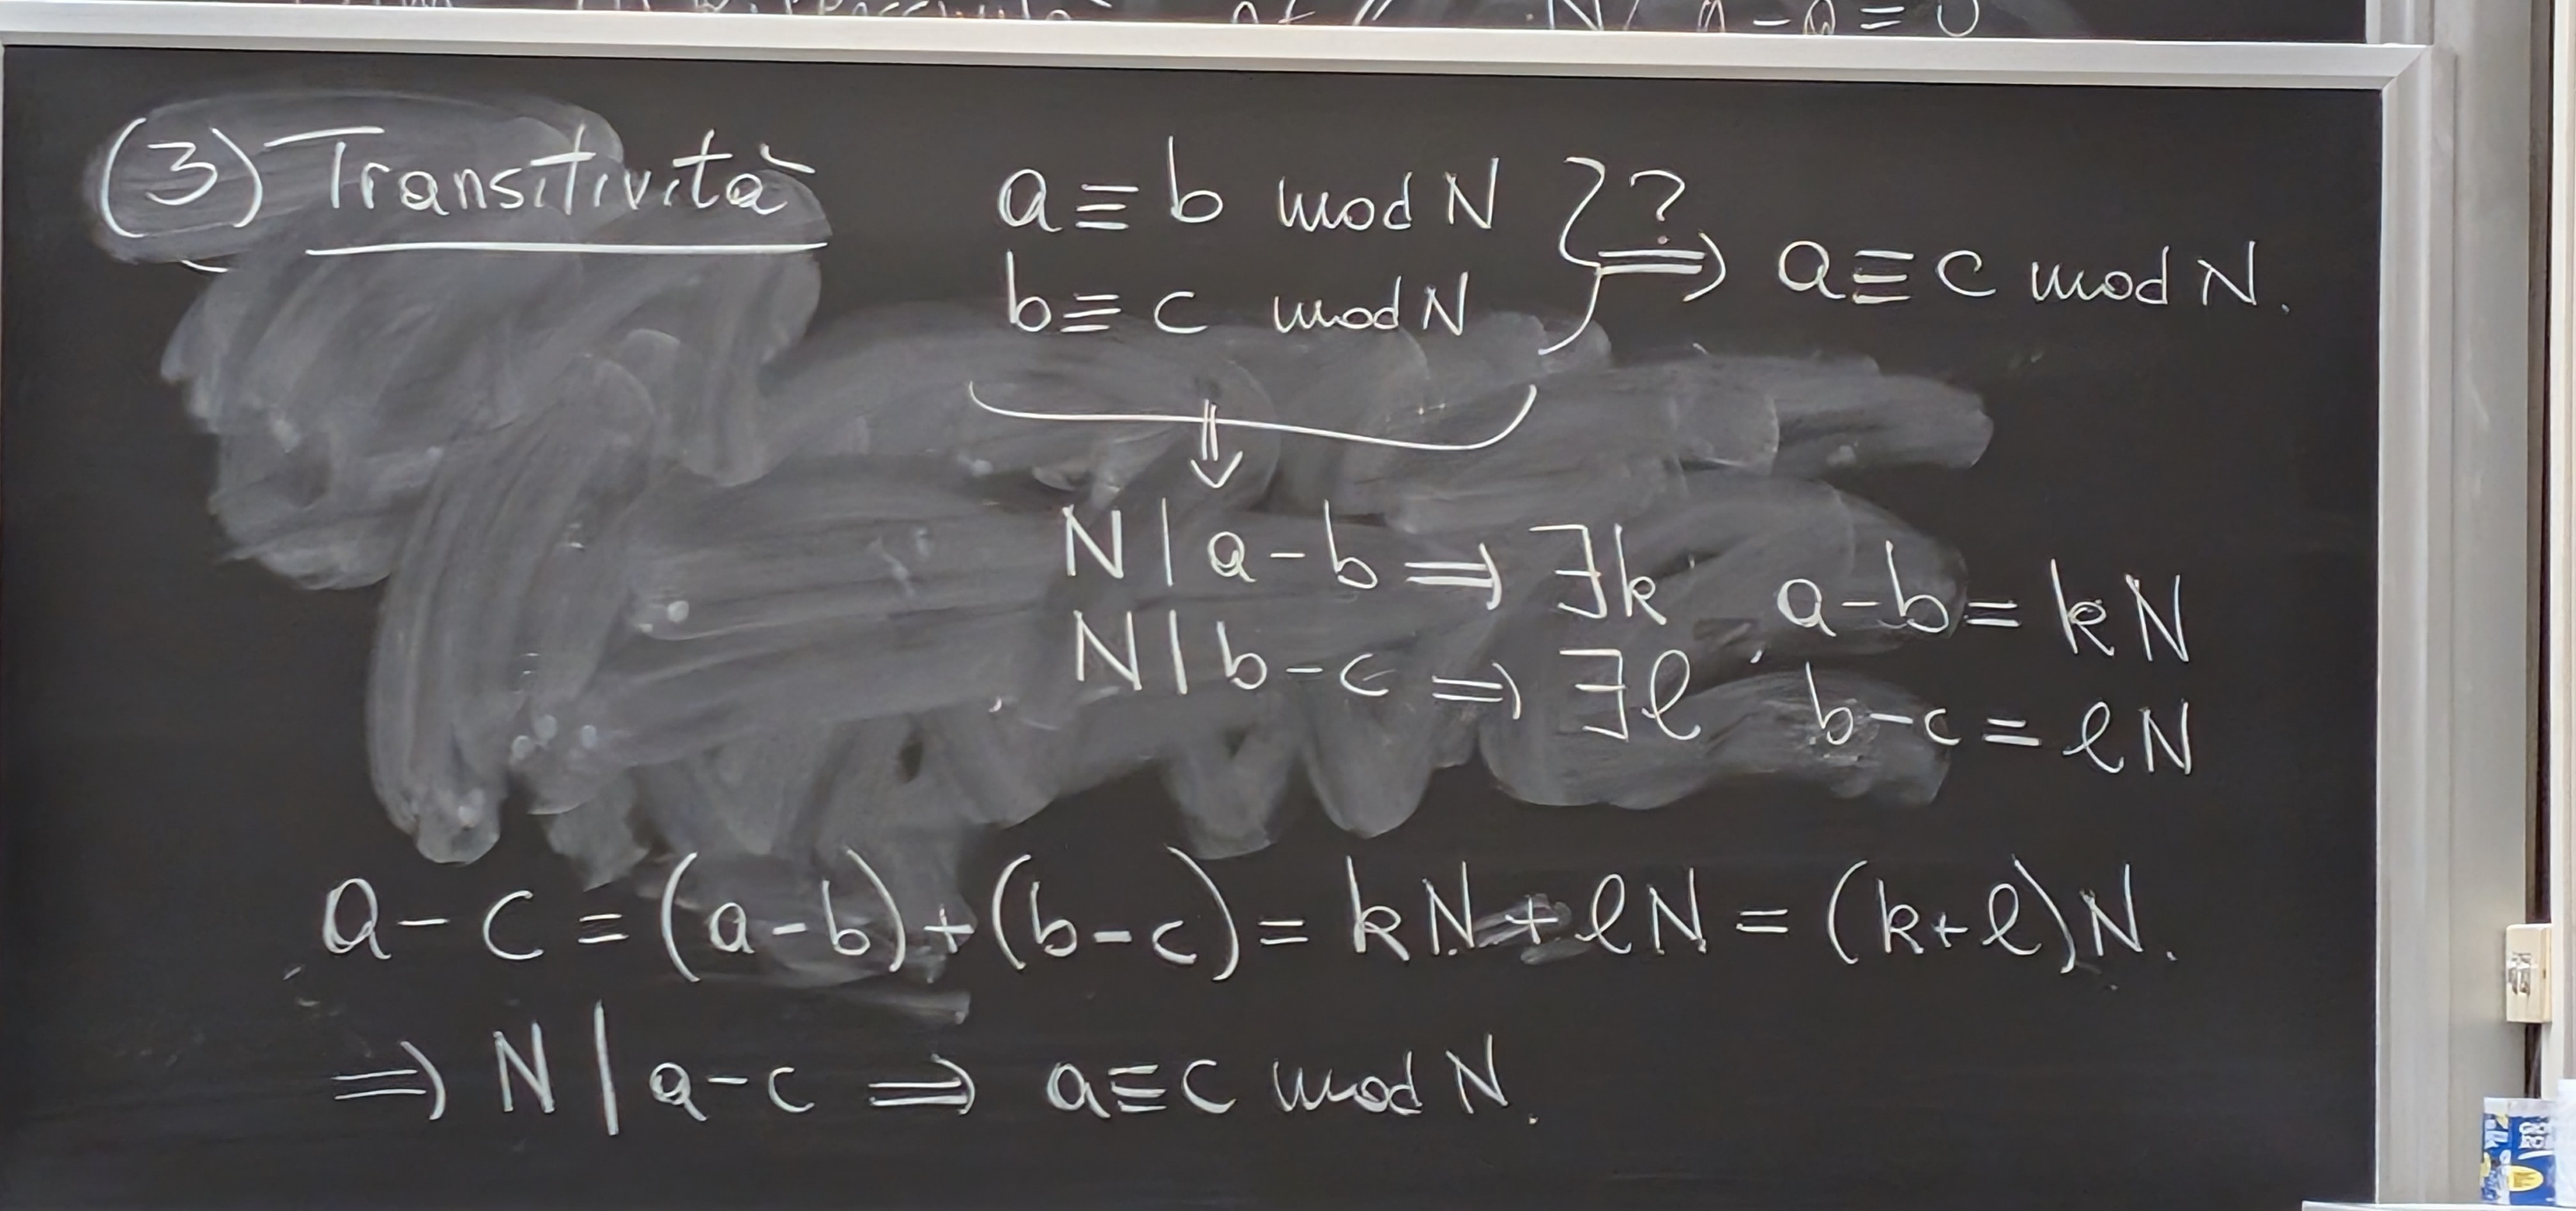 N | a - a = 0
(3) Transitività a ≡ b mod N } ? ⟹ a ≡ c mod N.
b ≡ c mod N
⇓
N | a - b ⟹ ∃k a - b = kN
N | b - c ⟹ ∃ℓ b - c = ℓN
a - c = (a - b) + (b - c) = kN + ℓN = (k + ℓ)N.
⟹ N | a - c ⟹ a ≡ c mod N.